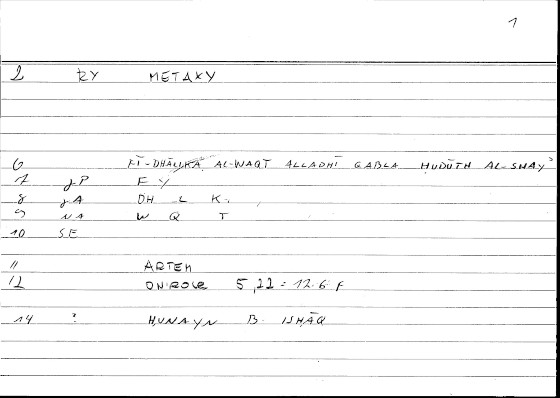 1
2 RY METAXY
6 FĪ-DHĀLIKA AL-WAQT ALLADHĪ QABLA ḤUDŪTH AL-SHAYʾ
7 JP F Y
8 JA DH L K
9 NA W Q T
10 SE
11 ARTEM
12 5,22 = 12.6 F
14 ? HUNAYN B. ISḤĀQ